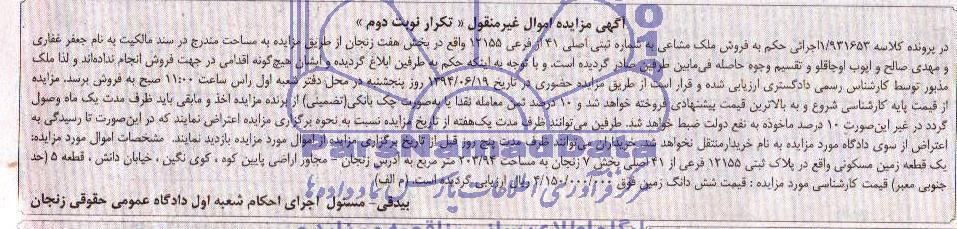 آگهی مزایده اموال غیرمنقول « تکرار نوبت دوم »
در پرونده کلاسه ۱/۹۳۱۶۵۳اجرائی حکم به فروش ملک مشاعی به شماره ثبتی اصلی ۴۱ از فرعی ۱۲۱۵۵ واقع در بخش هفت زنجان از طریق مزایده به مساحت مندرج در سند مالکیت به نام جعفر غفاری
و مهدی صالح و ایوب اوجاقلو و تقسیم وجوه حاصله فی‌مابین طرفین صادر گردیده است. و با توجه به اینکه حکم به طرفین ابلاغ گردیده و ایشان هیچ‌گونه اقدامی در جهت فروش انجام نداده‌اند و لذا ملک
مذبور توسط کارشناس رسمی دادگستری ارزیابی شده و قرار است از طریق مزایده حضوری در تاریخ ۱۳۹۴/۰۶/۱۹ روز پنجشنبه در محل دفتر شعبه اول راس ساعت ۱۱:۰۰ صبح به فروش برسد. مزایده
از قیمت پایه کارشناسی شروع و به بالاترین قیمت پیشنهادی فروخته خواهد شد و ۱۰ درصد ثمن معامله نقدا یا به‌صورت چک بانکی(تضمینی) از برنده مزایده اخذ و مابقی باید ظرف مدت یک ماه وصول
گردد در غیر این‌صورت ۱۰ درصد ماخوذه به نفع دولت ضبط خواهد شد. طرفین می‌توانند ظرف مدت یک‌هفته از تاریخ مزایده نسبت به نحوه برگزاری مزایده اعتراض نمایند که در این‌صورت تا رسیدگی به
اعتراض از سوی دادگاه مورد مزایده به نام خریدارمنتقل نخواهد شد. خریداران می‌توانند ظرف مدت پنج روز قبل از تاریخ برگزاری مزایده از اموال مورد مزایده بازدید نمایند. مشخصات اموال مورد مزایده:
یک قطعه زمین مسکونی واقع در پلاک ثبتی ۱۲۱۵۵ فرعی از ۴۱ اصلی بخش ۷ زنجان به مساحت ۲۰۲/۹۴ متر مربع به آدرس زنجان - مجاور اراضی پایین کوه ، کوی نگین ، خیابان دانش ، قطعه ۵ (حد
جنوبی معبر) قیمت کارشناسی مورد مزایده : قیمت شش دانگ زمین فوق ۴/۱۵۰/۰۰۰/۰۰۰ ریال ارزیابی گردیده است. (م الف)
بیدقی- مسئول اجرای احکام شعبه اول دادگاه عمومی حقوقی زنجان
مرکز فرآوری اطلاعات پارس نماد داده‌ها